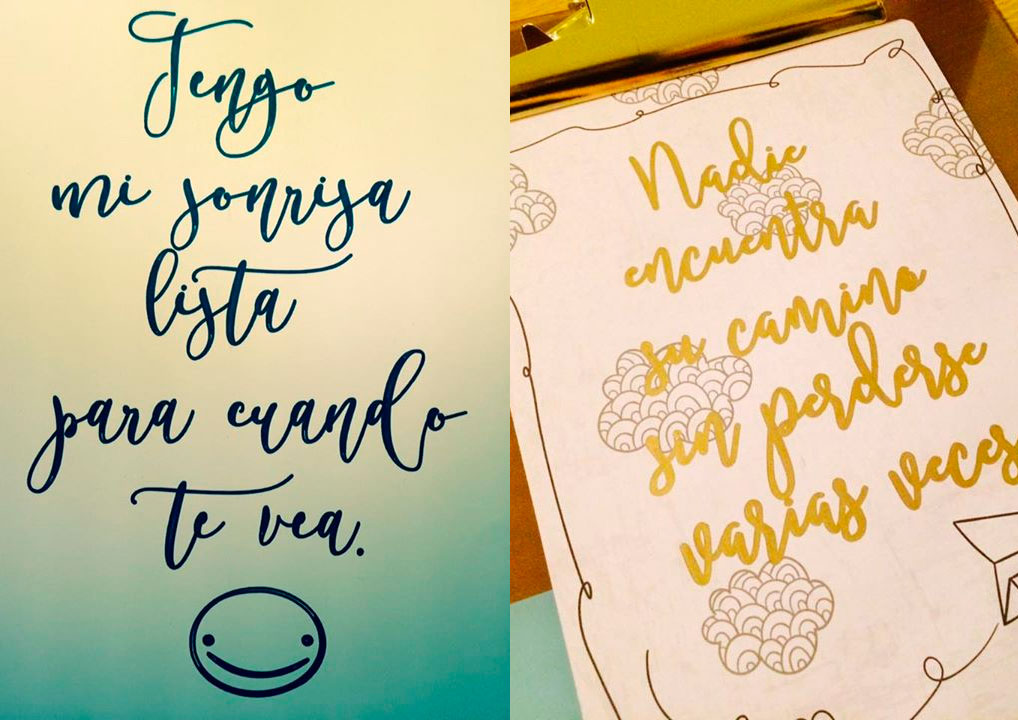 Tengo
mi sonrisa
lista
para cuando
te vea.
Nadie
encuentra
su camino
sin perderse
varias veces